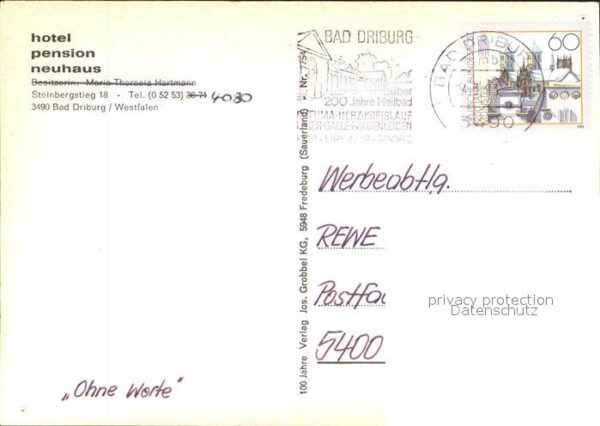 hotel
pension
neuhaus
Besitzerin: Maria Theresia Hartmann
Steinbergstieg 18 - Tel. (0 52 53) 36 71 4030
3490 Bad Driburg / Westfalen
BAD DRIBURG
über
200 Jahre Heilbad
RHEUMA-HERZ-KREISLAUF
BAD DRIBURG
3490
60
100 Jahre Verlag Jos. Grobbel KG, 5948 Fredeburg (Sauerland) Nr. 7/54
Werbeabtlg.
REWE
Postfa
5400
privacy protection
Datenschutz
„Ohne Worte"